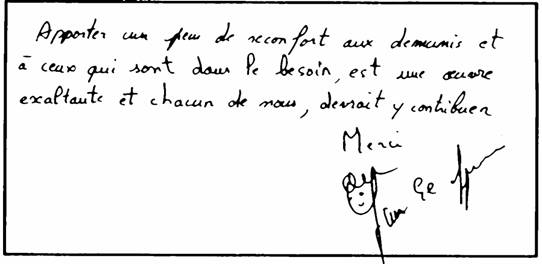 Apporter un peu de reconfort aux demunis et
à ceux qui sont dans le besoin, est une œuvre
exaltante et chacun de nous, devrait y contribuer
Merci